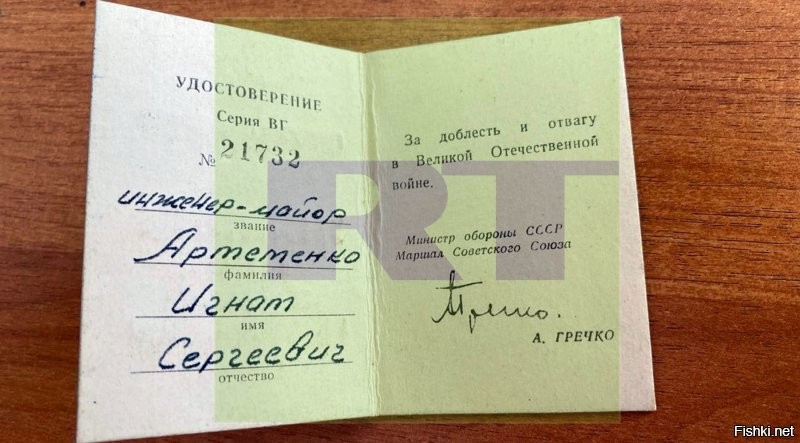 УДОСТОВЕРЕНИЕ
Серия ВГ
№ 21732
инженер-майор
звание
Артеменко
фамилия
Игнат
имя
Сергеевич
отчество
За доблесть и отвагу
в Великой Отечественной
войне.
Министр обороны СССР
Маршал Советского Союза
Гречко.
А. ГРЕЧКО
RT
Fishki.net